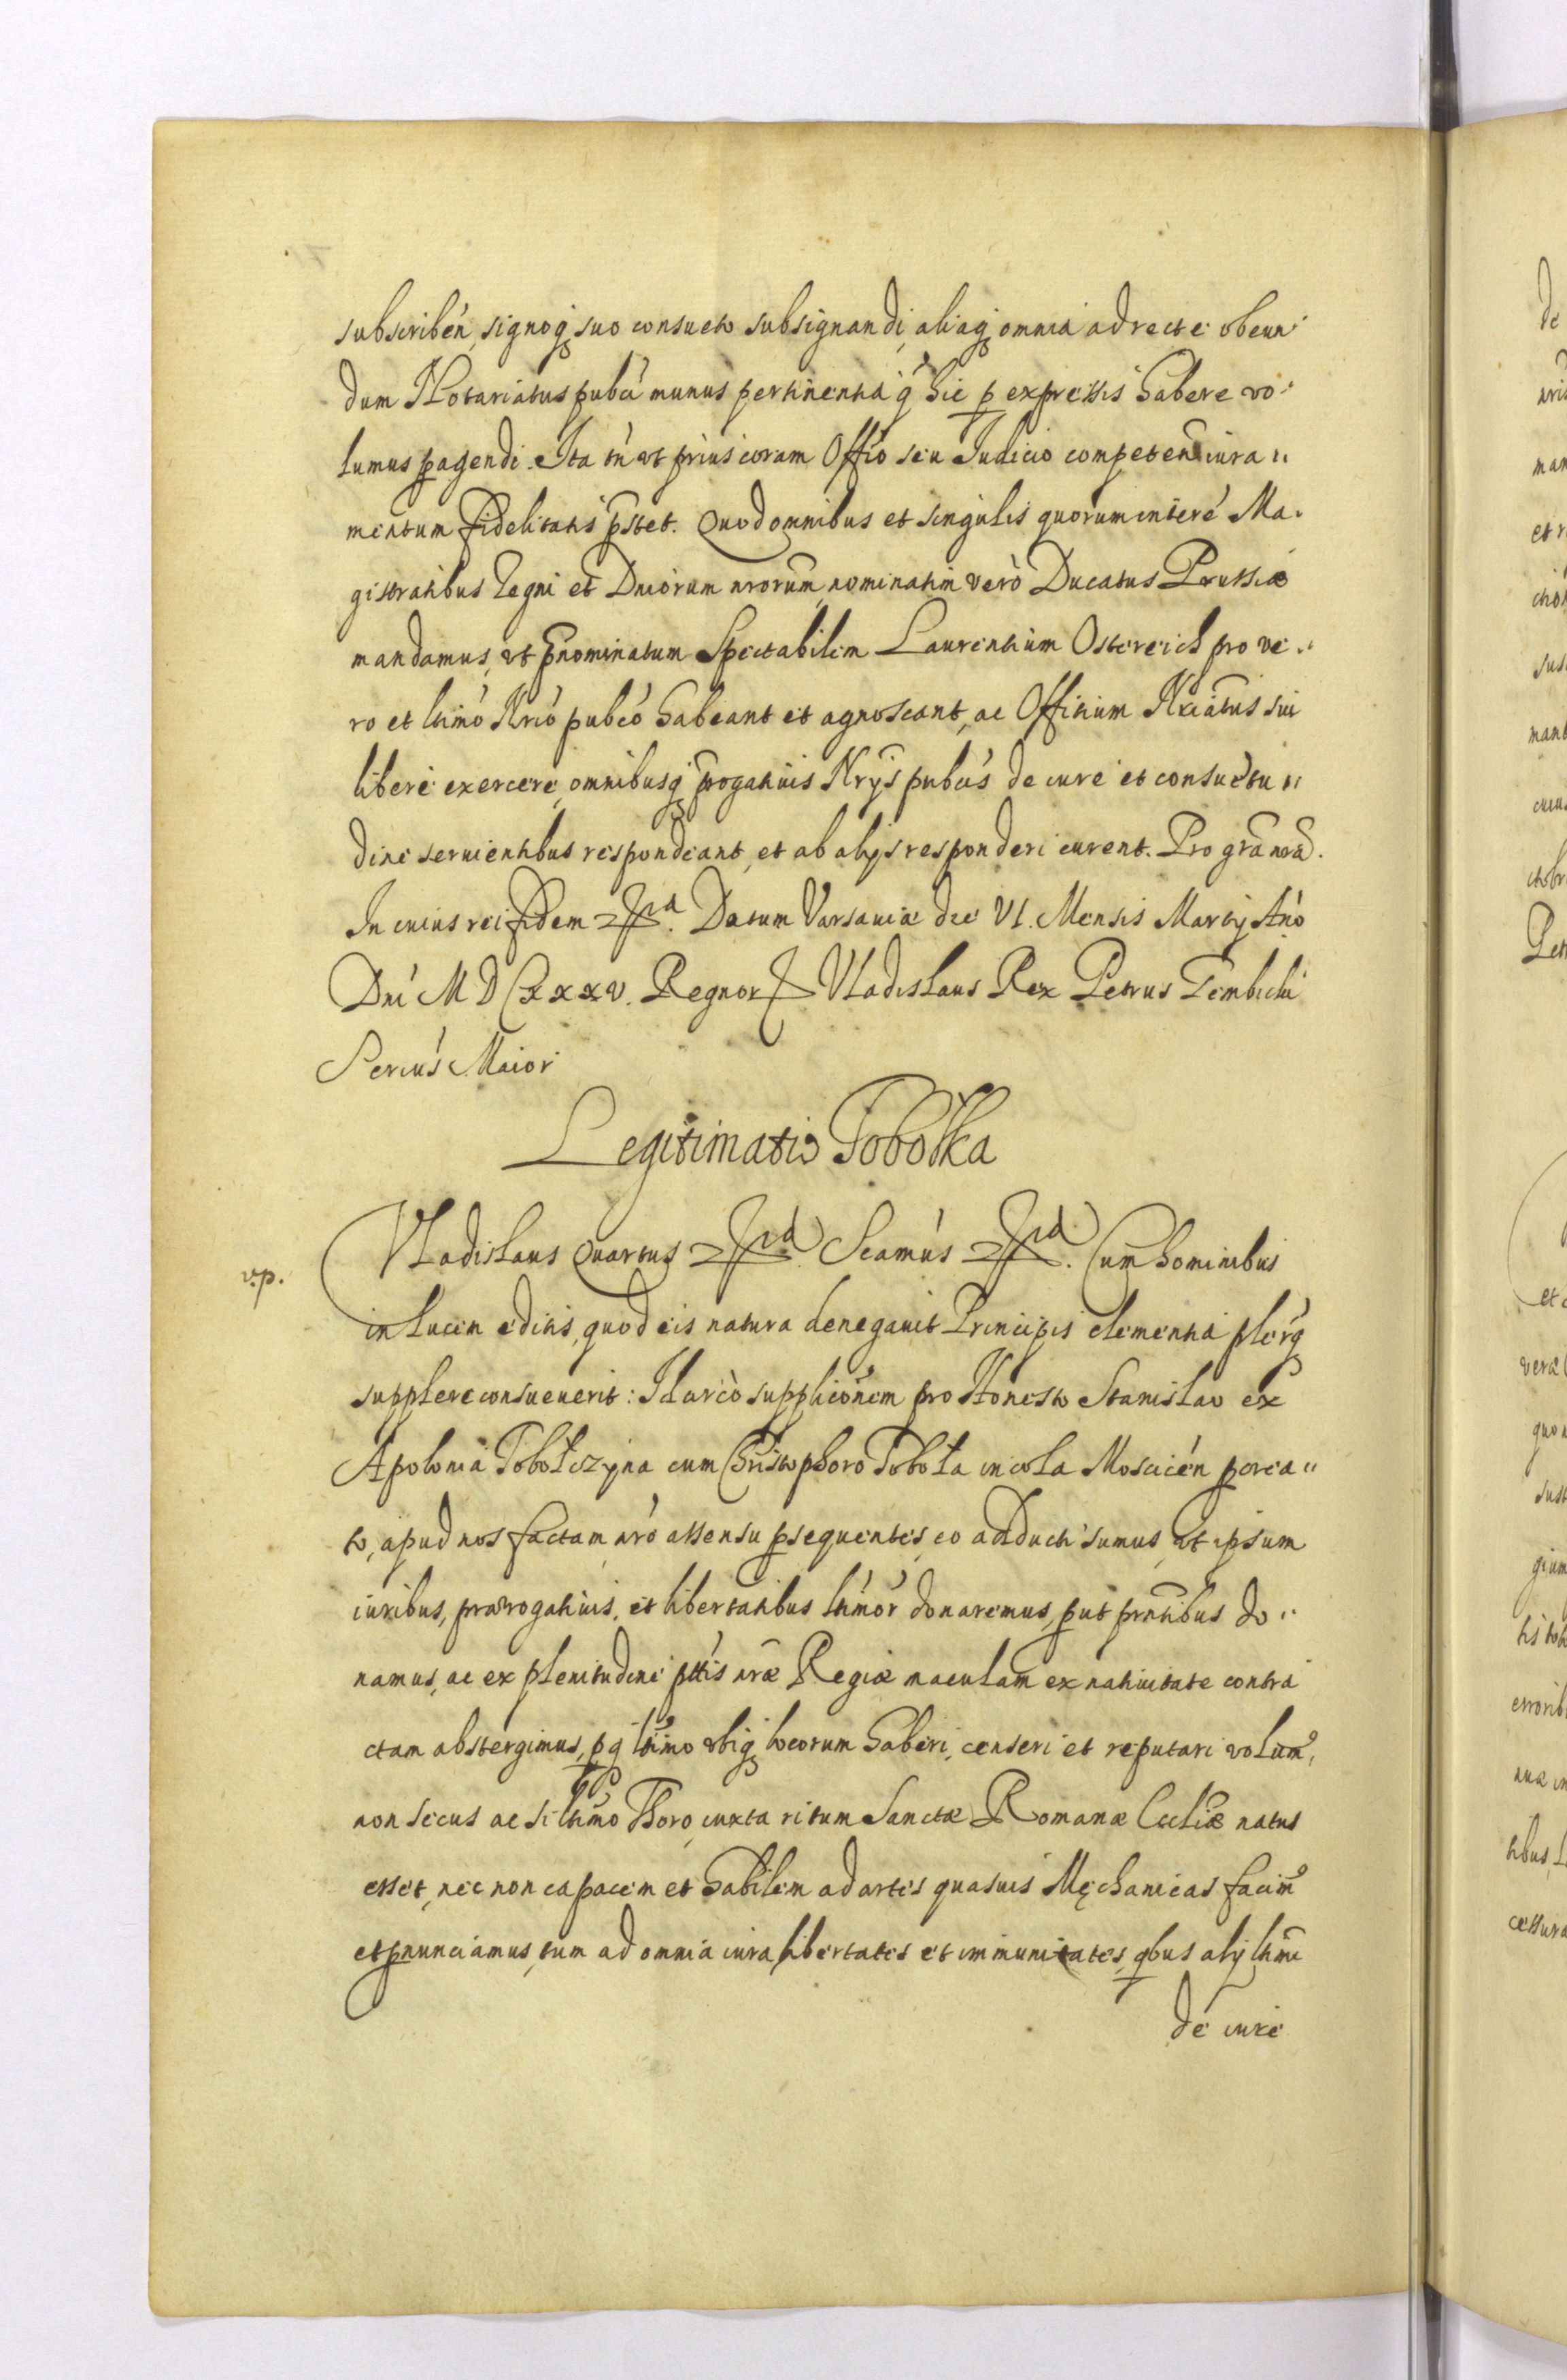 subscriben, signoq suo consueto subsignandi, aliaq omnia ad recte obeun
dum Notariatus pubci munus pertinentia q hic p expressis habere vo
lumus pagendi. Ita tn ut prius coram Offio seu Iudicio competen iura
mentum fidelitatis pstet. Quod omnibus et singulis quorum intere Ma
gistratibus Regni et Dniorum nrorum, nominatim verò Ducatus Prussiæ
mandamus, ut pnominatum Spectabilem Laurentium Ostereich pro ve
ro et ltimo Nrio pubco habeant et agnoscant, ac Officium Nriatus sui
libere exercere, omnibusq progativis Nrijs pubcis de iure et consuetu
dine servientibus respondeant, et ab alijs responderi curent. Pro gra nra.
In cuius rei fidem Datum Varsaviæ die VI. Mensis Martij Ano
Dni M D C xxxv. Regnor Vladislaus Rex Petrus Gembicki
Secrius Maior
Legitimatio Tobolka
v.p.
Vladislaus Quartus Seamus Cum hominibus
in lucem editis, quod eis natura denegavit Principis clementia plerq
supplere consueverit: Id circò supplicionem pro Honesto Stanislao ex
Apolonia Tobolczyna cum Christophoro Tobola incola Moscicen procrea
to, apud nos factam nro assensu psequentes, eo adducti sumus, ut ipsum
iuribus, prærogativis, et libertatibus ltimor donaremus, put pntibus do
namus, ac ex plenitudine pttis nræ Regiæ maculam ex nativitate contra
ctam abstergimus, pq ltimo ubiq locorum haberi, censeri et reputari volum,
non secus ac si ltimo Thoro, iuxta ritum Sanctæ Romanæ Eccliæ natus
esset, nec non capacem et habilem ad artes quasvis Mechanicas facim
et pnunciamus, tum ad omnia iura libertates et immunitates, qbus alij ltimi
de iure